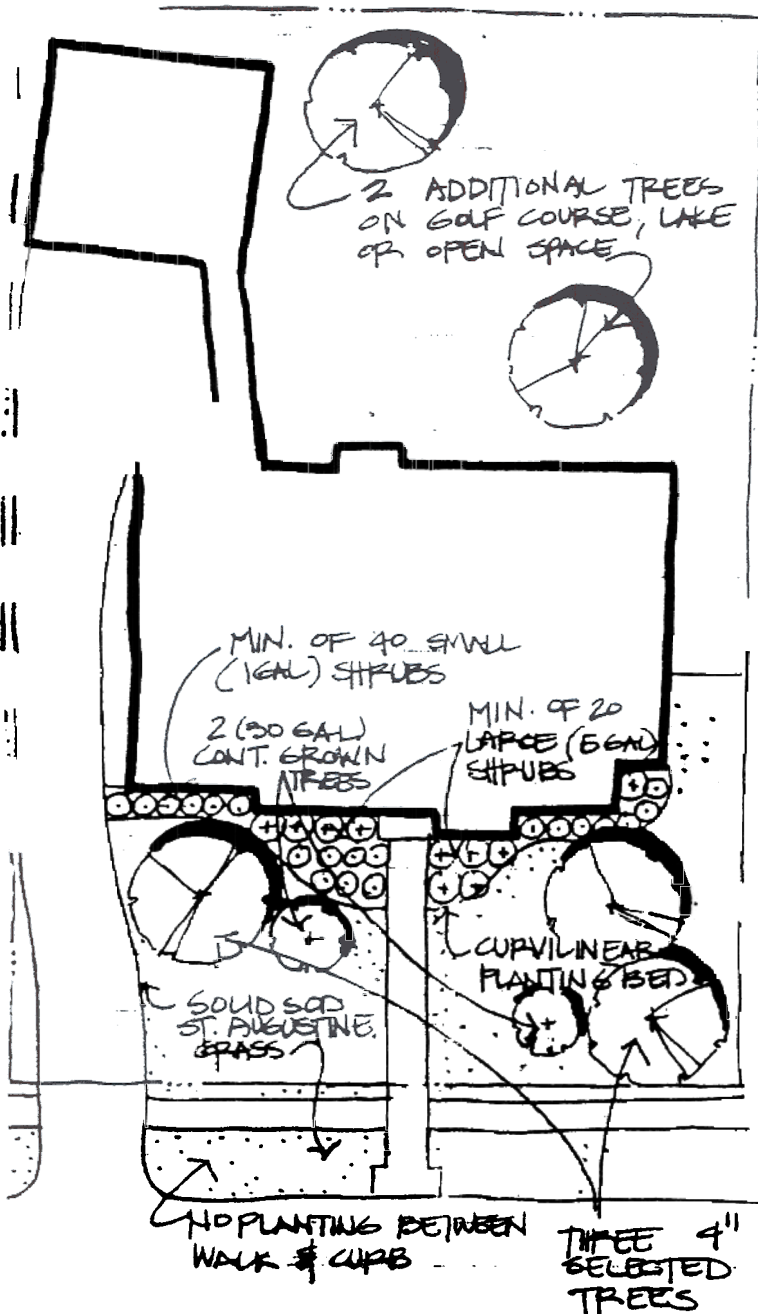 2 ADDITIONAL TREES
ON GOLF COURSE, LAKE
OR OPEN SPACE
MIN. OF 40 SMALL
(1GAL) SHRUBS
2 (30 GAL)
CONT. GROWN
TREES
MIN. OF 20
LARGE (5 GAL)
SHRUBS
CURVILINEAR
PLANTING BED
SOLID SOD
ST. AUGUSTINE
GRASS
NO PLANTING BETWEEN
WALK & CURB
THREE 4"
SELECTED
TREES